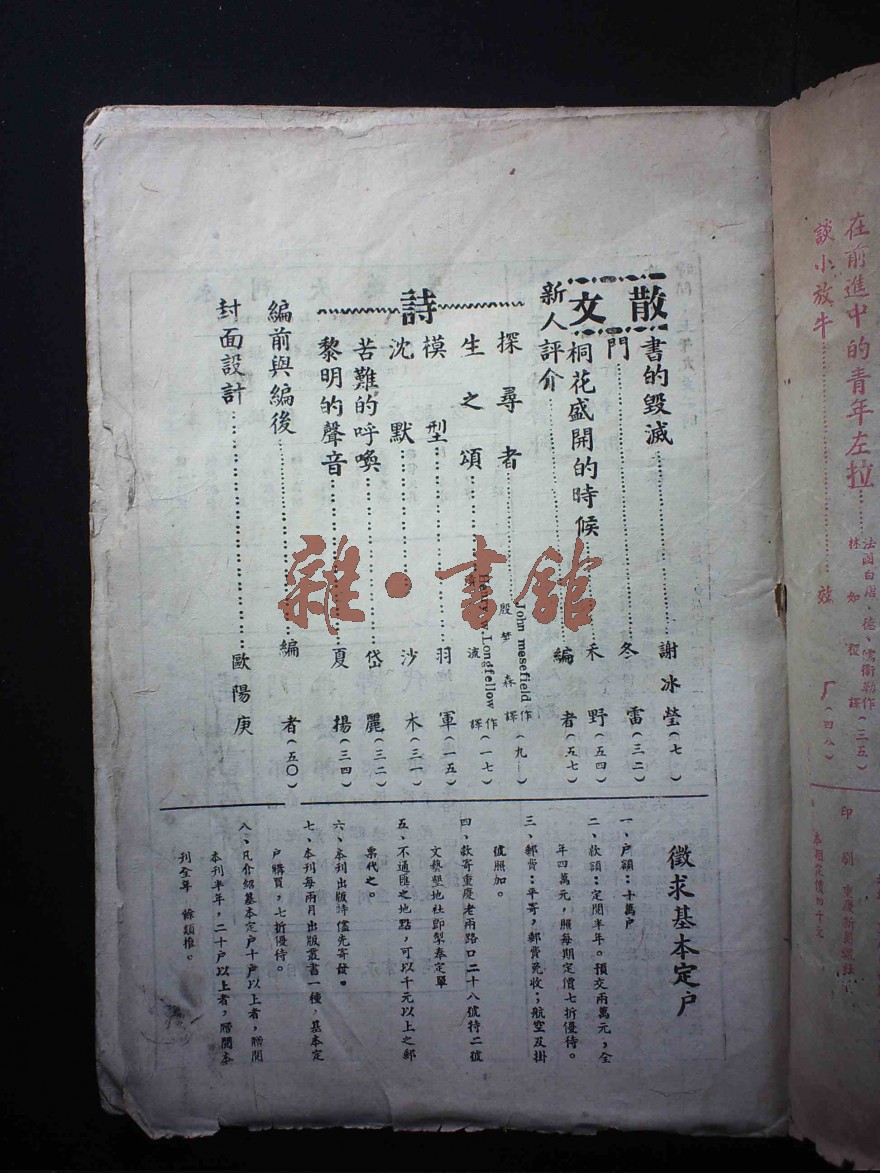 在前進中的青年左拉
林如稷譯（三五）
談小放牛
厂（四八）
散文
書的毀滅………謝冰瑩（七）
門………冬雷（三二）
桐花盛開的時候………禾野（五四）
新人評介………編者（五七）
詩
探尋者………John mesefield作 殷梦森譯（九）
生之頌………Henry.w.Longfellow作 波譯（一七）
模型………羽軍（一五）
沈默………沙木（三一）
苦難的呼喚………岱麗（三二）
黎明的聲音………夏揚（三四）
編前與編後………編者（五〇）
封面設計………歐陽庚
徵求基本定户
一、户額：十萬户
二、款額：定閱半年。預交兩萬元，全
年四萬元，照每期定價七折優待。
三、郵費：平寄，郵費免收；航空及掛
號照加。
四、款寄重慶老兩路口二十八號特二號
文藝墾地社即掣奉定單
五、不通匯之地點，可以千元以上之郵
票代之。
六、本刊出版時儘先寄發。
七、本刊每兩月出版叢書一種，基本定
户購買，七折優待。
八、凡介紹基本定户十户以上者，贈閱
本刊半年，二十户以上者，贈閱本
刊全年 餘類推。
印刷
雜·書館